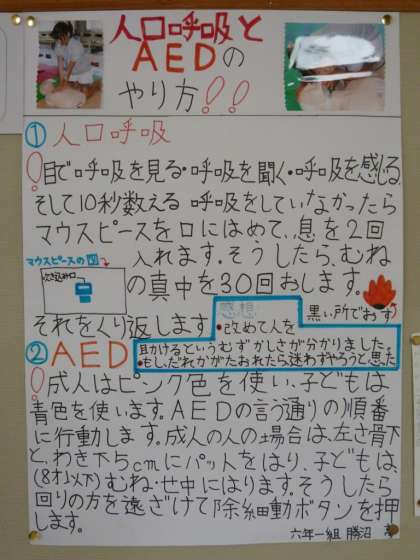 人口呼吸と
AEDの
やり方!!
①人口呼吸
!目で呼吸を見る・呼吸を聞く・呼吸を感じる
そして10秒数える 呼吸をしていなかったら
マウスピースを口にはめて、息を2回
入れます。そうしたら、むね
の真中を30回おします。
マウスピースの図
吹き込み口
黒い所でおす
それをくり返します
感想
•改めて人を
助けるというむずかしさが分かりました。
•もし、だれかがたおれたら迷わずやろうと思った
②AED
!成人はピンク色を使い、子どもは
青色を使います。AEDの言う通りの順番
に行動します。成人の人の場合は、左さ骨下
と、わき下5cmにパットをはり、子どもは、
(8才以下)むね・せ中にはります。そうしたら
回りの方を遠ざけて除細動ボタンを押
します。
六年一組 勝沼